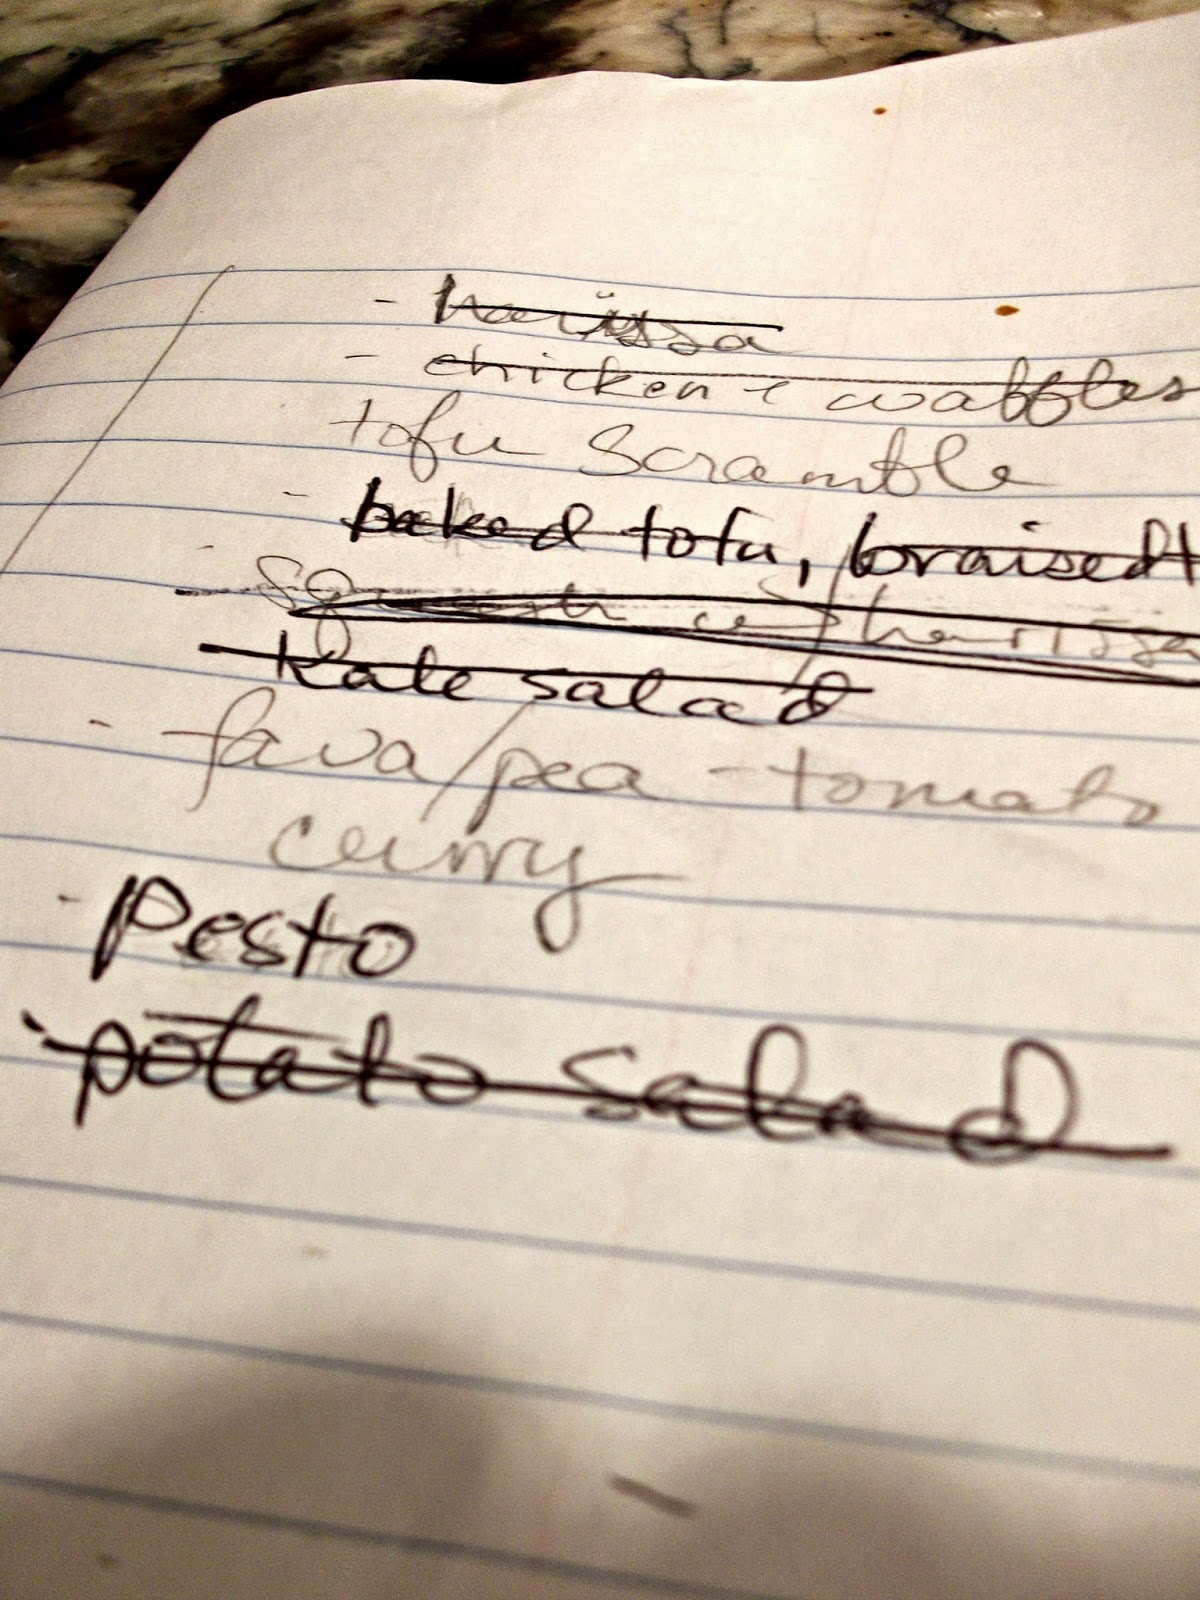 - harissa
- chicken & waffles
tofu scramble
- baked tofu, braised t
- squash w/ harissa
- kale salad
- fava/pea - tomato
curry
- Pesto
- potato salad